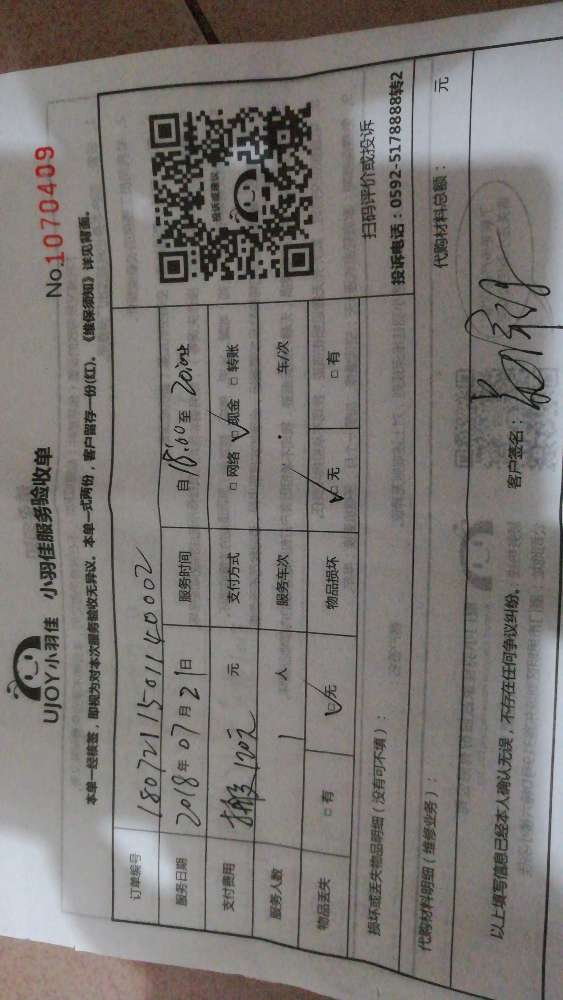 UJOY小羽佳 小羽佳服务验收单
No.1070409
本单一经核签，即视为对本次服务验收无异议。本单一式两份，客户留存一份(红)。《维保须知》详见背面。
订单编号 1807211501140002
服务日期 2018年07月21日 服务时间 自18:00至20:00
支付费用 搬 120元 元 支付方式 □网络 □现金 □转账
服务人数 1 人 服务车次 车/次
物品丢失 □有 □无 物品损坏 □无 □有
投诉或建议
扫码评价或投诉
投诉电话：0592-5178888转2
损坏或丢失物品明细（没有可不填）：
代购材料明细（维修业务）： 代购材料总额： 元
以上填写信息已经本人确认无误，不存在任何争议纠纷。 客户签名：